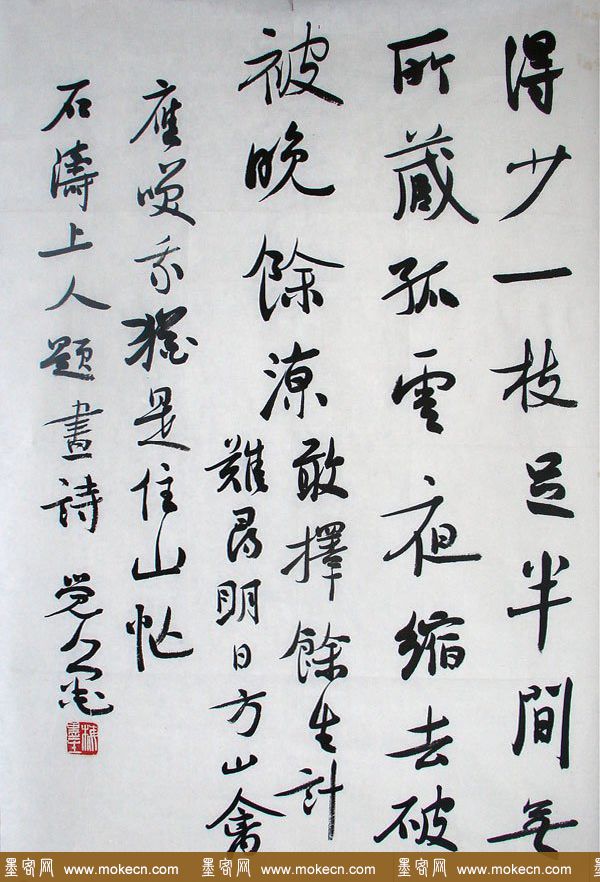 得少一枝足半間無
所藏孤雲夜縮去破
被晚餘涼敢擇餘生計
難尋明日方山禽
應咲我猶是住山忙
石濤上人題畫詩
墨客网 www.mokecn.com 墨客网 www.mokecn.com 墨客网 www.mokecn.com